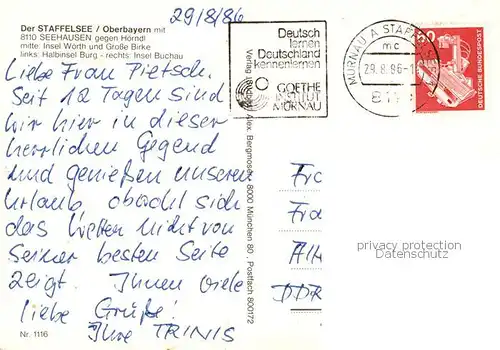 29/8/86
Der STAFFELSEE / Oberbayern mit
8110 SEEHAUSEN gegen Hörndl
mitte: Insel Wörth und Große Birke
links: Halbinsel Burg - rechts: Insel Buchau
Liebe Frau Pietsch,
Seit 12 Tagen sind
wir hier in dieser
herrlichen Gegend
und genießen unseren
Urlaub, obwohl sich
das Wetter nicht von
Seiner besten Seite
zeigt. Ihnen viele
liebe Grüße!
Ihre TRINIS
Nr. 1116
Verlag Alex. Bergmoser, 8000 München 80, Postfach 800172
Deutsch
lernen
Deutschland
kennenlernen
GOETHE
INSTITUT
MURNAU
MURNAU A STAFFELSEE
mc
29.8.86-1
811
DEUTSCHE BUNDESPOST
Fra
Alt
DDR
privacy protection
Datenschutz